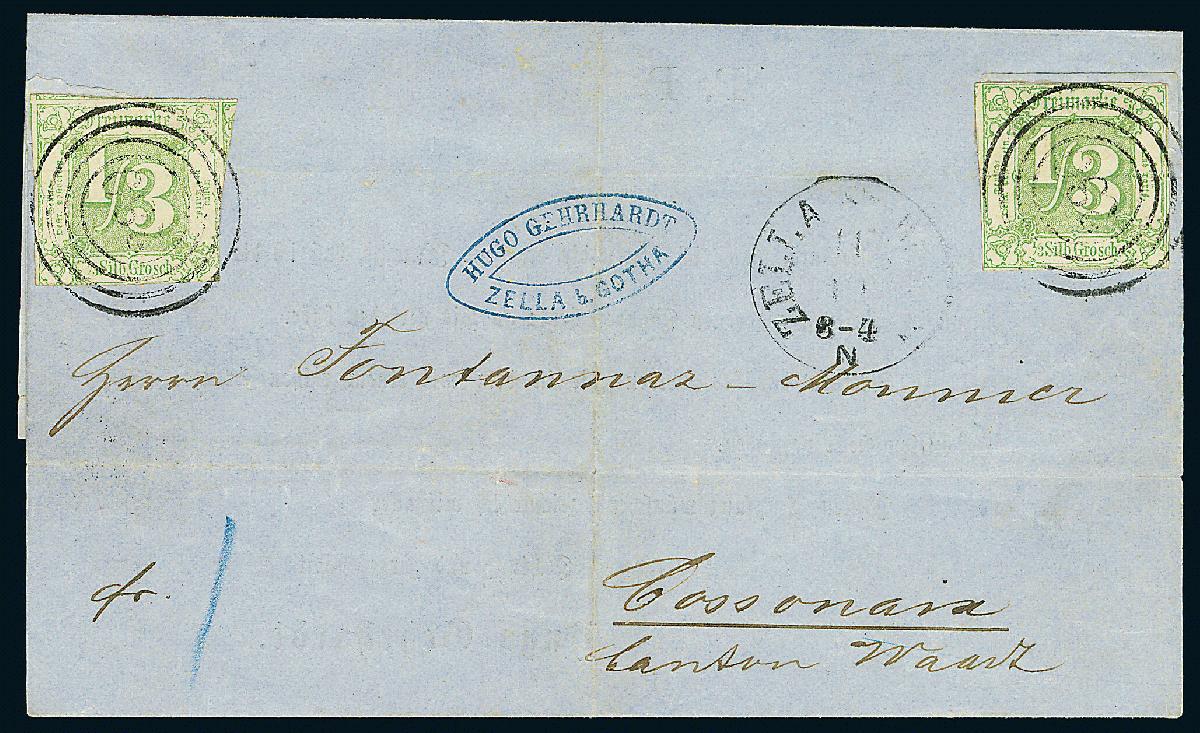 Freimarke
1/3
1/3 Silb. Grosch.
Freimarke
1/3
1/3 Silb. Grosch.
HUGO GEHRHARDT
ZELLA b. GOTHA
ZELLA
11
8-4
N
Herrn Fontannaz - Monnier
fr. 1
Cossonaix
Canton Waadt